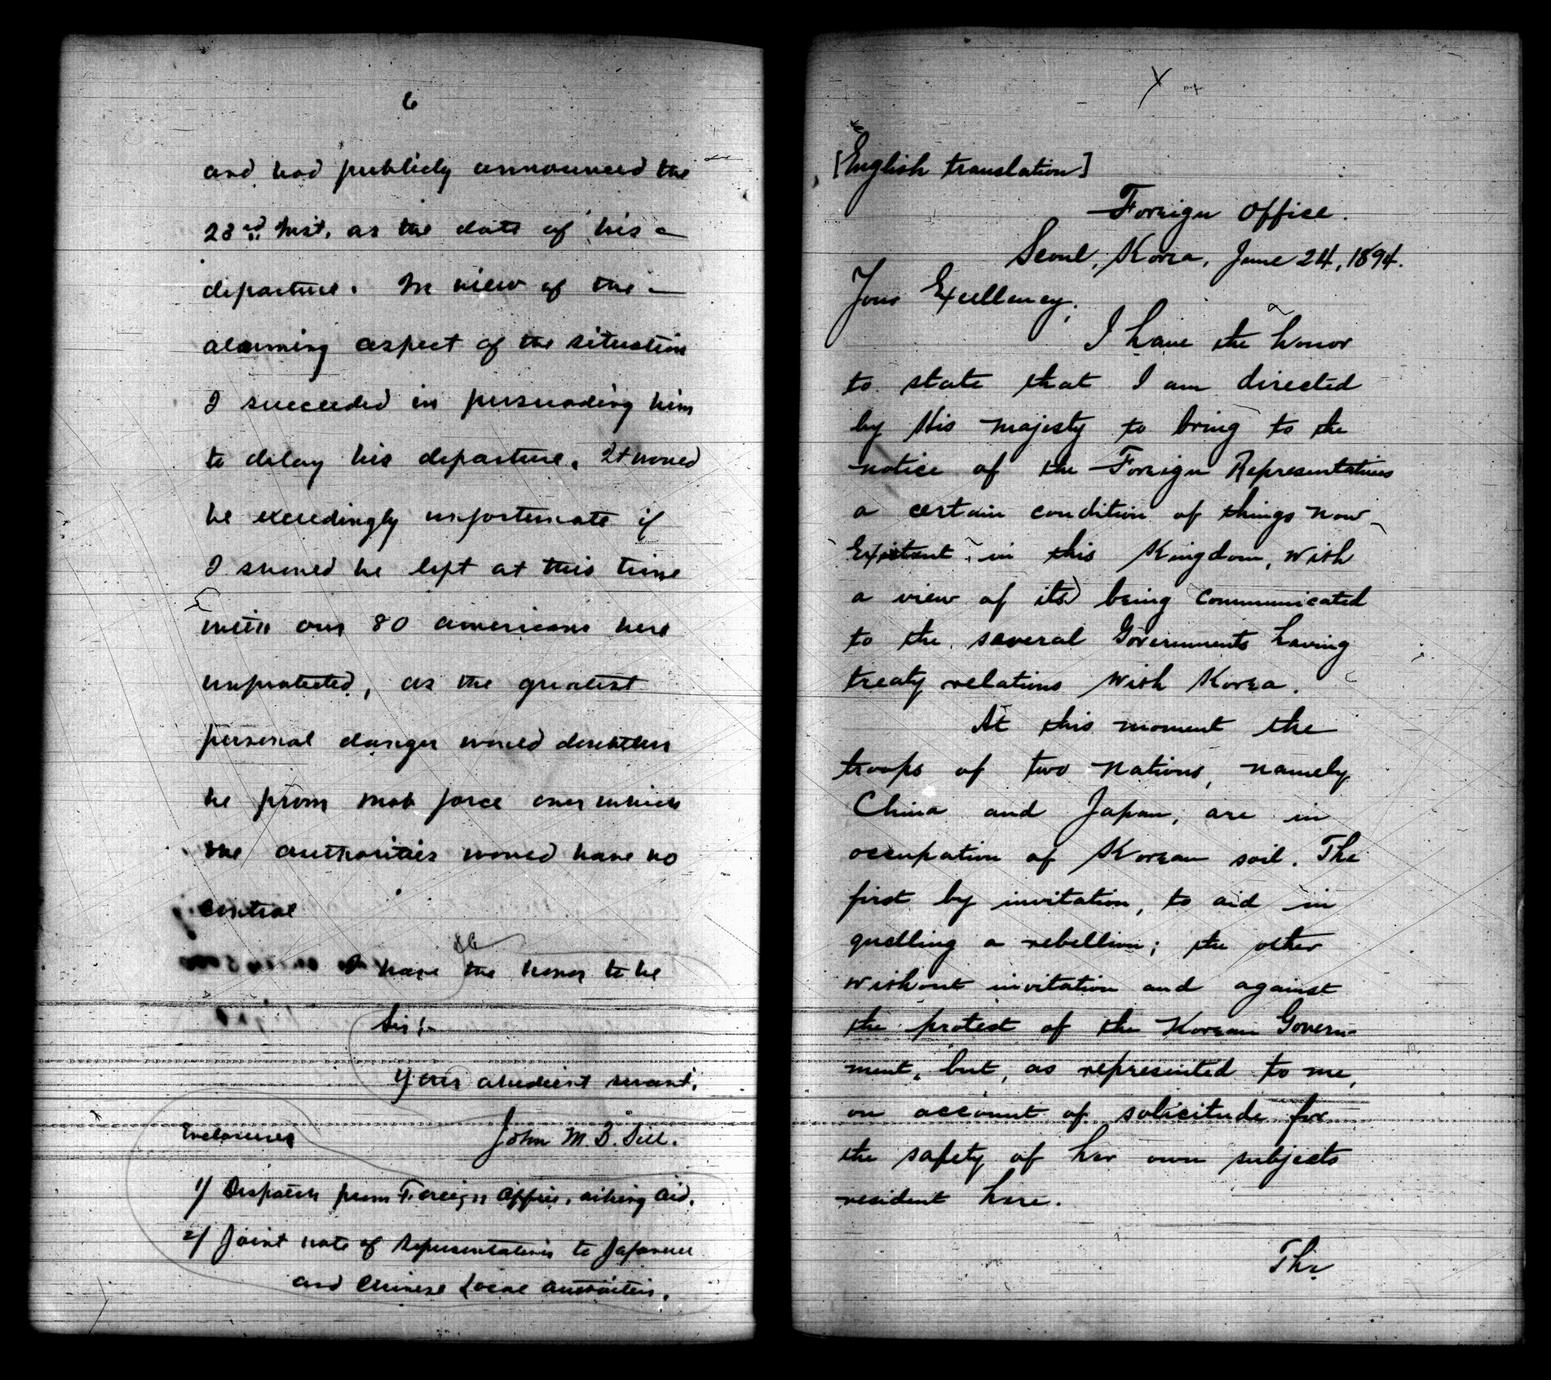 6
and had publicly announced the
23rd inst. as the date of his
departure. In view of the
alarming aspect of the situation
I succeeded in persuading him
to delay his departure. It would
be exceedingly unfortunate if
I should be left at this time
with our 80 americans here
unprotected, as the greatest
personal danger would doubtless
be from mob force over which
the authorities would have no
control
I have the honor to be
Sir:
Your obedient servant,
John M. B. Sill.
Enclosures
1/ Dispatch from Foreign Office, asking aid.
2/ Joint note of Representatives to Japanese
and Chinese Local authorities.
[English translation]
Foreign Office.
Seoul, Korea, June 24, 1894.
Your Excellency;
I have the honor
to state that I am directed
by His Majesty to bring to the
notice of the Foreign Representatives
a certain condition of things now
Existent in this Kingdom, with
a view of its being communicated
to the several Governments having
treaty relations with Korea.
At this moment the
troops of two Nations, namely
China and Japan, are in
occupation of Korean soil. The
first by invitation, to aid in
quelling a rebellion; the other
without invitation and against
the protest of the Korean Govern-
ment, but, as represented to me,
on account of solicitude for
the safety of her own subjects
resident here.
The